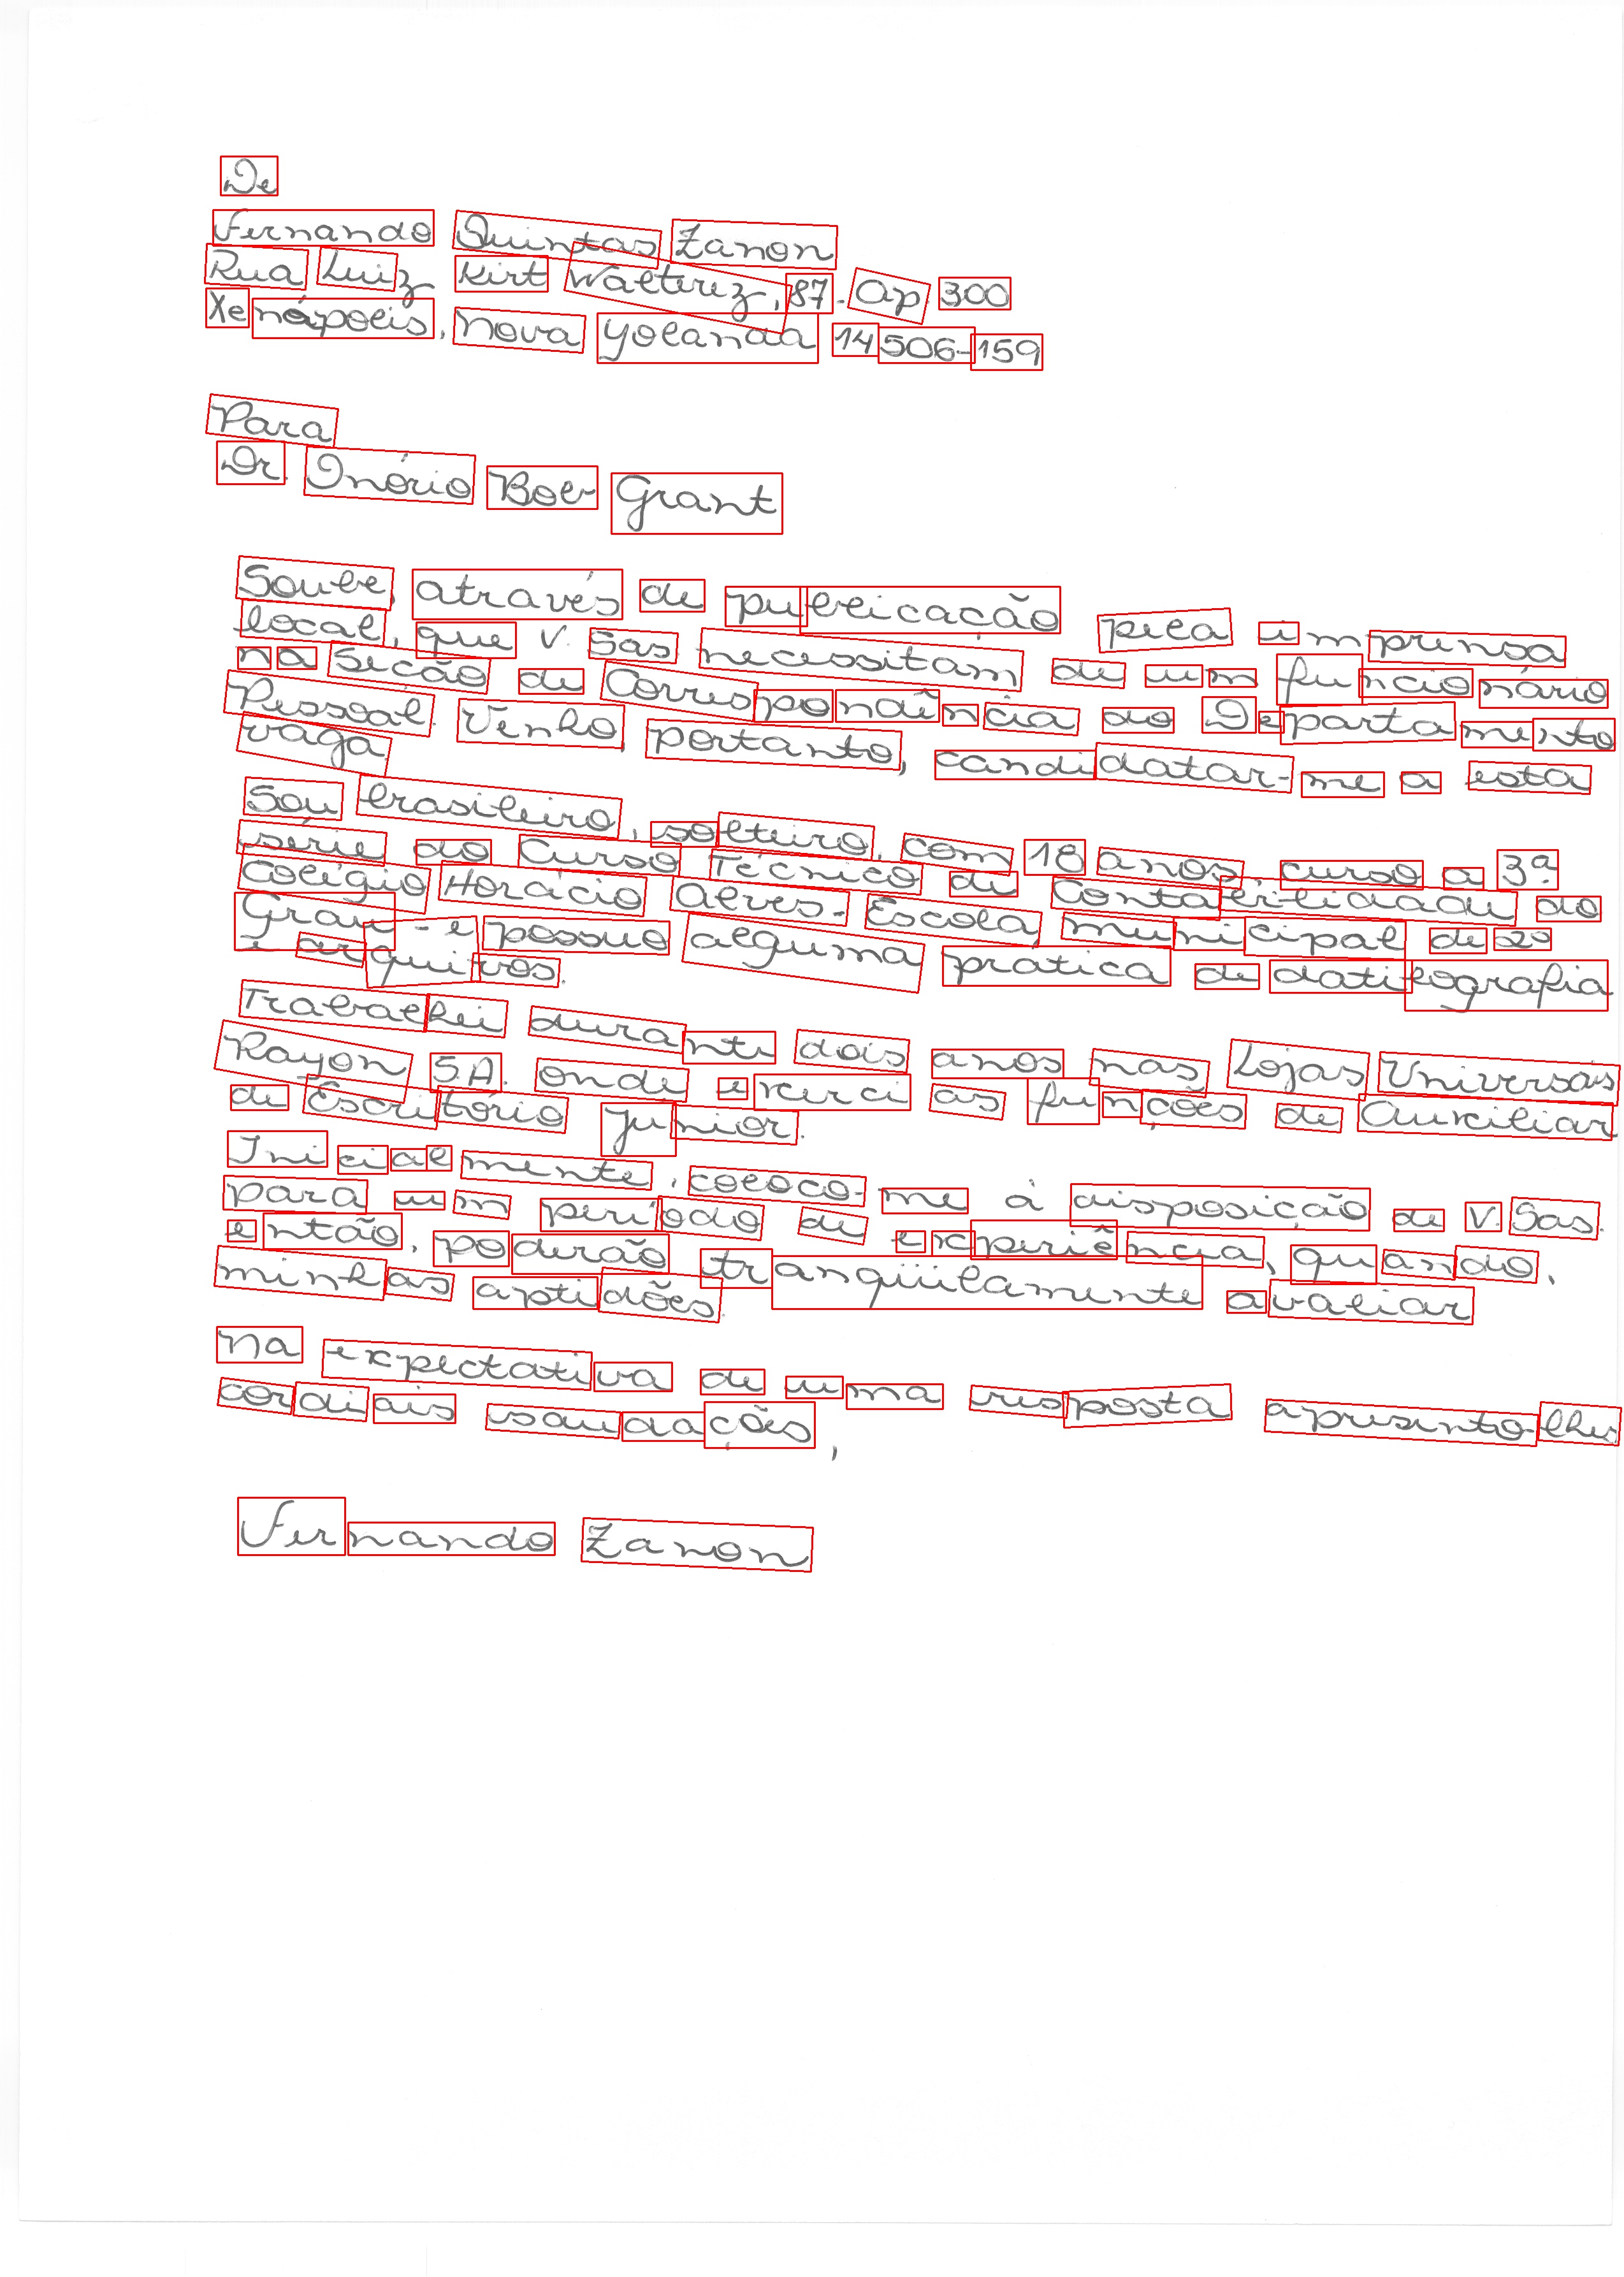 De
Fernando Quintas Zanon
Rua Luiz Kirt Walterez, 87 - Ap 300
Xenápolis, Nova Yolanda 14506-159
Para
Dr. Inório Bob Grant
Soube, através de publicação pela imprensa
local, que V. Sas necessitam de um funcionário
na Seção de Correspondência do Departamento
Pessoal. Venho, portanto, candidatar-me a esta
vaga.
Sou brasileiro, solteiro, com 18 anos, curso a 3ª
série do Curso Técnico de Contabilidade do
Colégio Horácio Alves - Escola Municipal de 2º
Grau - e possuo alguma pratica de datilografia
e arquivos.
Trabalhei durante dois anos nas Lojas Universais
Rayon S.A. onde exerci as funções de Auxiliar
de Escritório Junior.
Inicialmente, coloco-me à disposição de V. Sas.
para um periodo de experiência, quando,
então, poderão tranqüilamente avaliar
minhas aptidões.
Na expectativa de uma resposta apresento-lhes
cordiais saudações,
Fernando Zanon